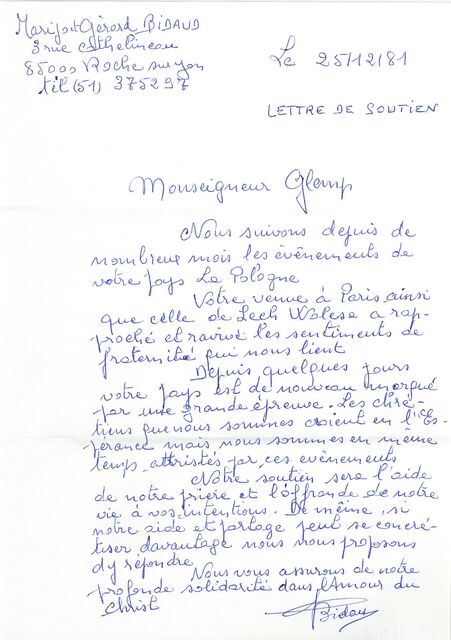 Marijo et Gérard BIDAUD
3 rue Cathelineau
85000 Roche sur yon
tél (51) 375297
Le 25/12/81
LETTRE DE SOUTIEN
Monseigneur Glemp
Nous suivons depuis de
nombreux mois les évènements de
votre pays La Pologne
Votre venue à Paris ainsi
que celle de Lech Walesa a rap-
proché et ravivé les sentiments de
fraternité qui nous lient
Depuis quelques jours
votre pays est de nouveau marqué
par une grande épreuve. Les chré-
tiens que nous sommes croient en l'Es-
pérance mais nous sommes en même
temps attristés par ces evènements
Notre soutien sera l'aide
de notre prière et l'offrande de notre
vie à vos intentions. De même, si
notre aide et partage peut se concré-
tiser davantage nous nous proposons
d'y répondre
Nous vous assurons de notre
profonde solidarité dans l'Amour du
Christ
Bidaud